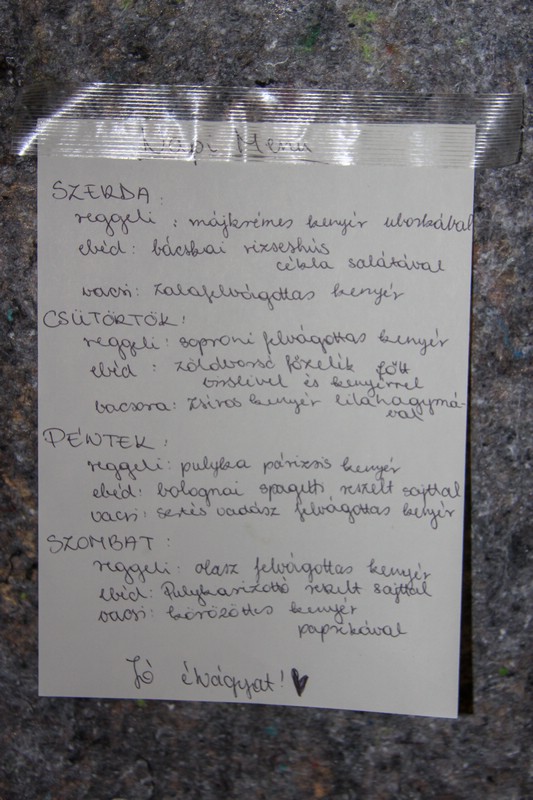 Napi Menü
SZERDA:
reggeli: májkrémes kenyér uborkával
ebéd: bácskai rizseshús
cékla salátával
vacsi: zalafelvágottas kenyér
CSÜTÖRTÖK:
reggeli: soproni felvágottas kenyér
ebéd: zöldborsó főzelék főtt
virslivel és kenyérrel
vacsora: zsíros kenyér lilahagymá-
val
PÉNTEK:
reggeli: pulyka párizsis kenyér
ebéd: bolognai spagetti reszelt sajttal
vacsi: sertés vadász felvágottas kenyér
SZOMBAT:
reggeli: olasz felvágottas kenyér
ebéd: Pulykarizottó reszelt sajttal
vacsi: körözöttes kenyér
paprikával
Jó étvágyat!